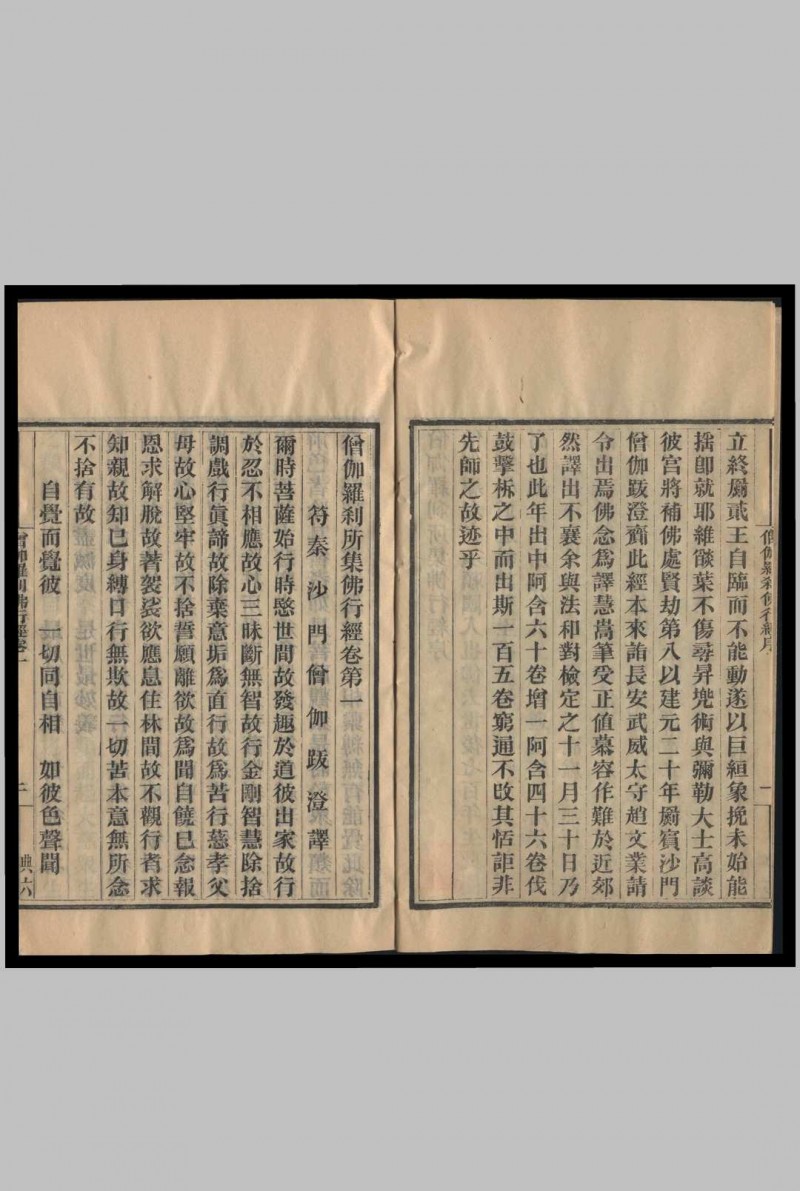 立終罽貳王自臨而不能動遂以巨絙象挽未始能
搖卽就耶維燄葉不傷尋昇兠術與彌勒大士高談
彼宮將補佛處賢劫第八以建元二十年罽賓沙門
僧伽跋澄齎此經本來詣長安武威太守趙文業請
令出焉佛念為譯慧嵩筆受正値慕容作難於近郊
然譯出不襄余與法和對檢定之十一月三十日乃
了也此年出中阿含六十卷增一阿含四十六卷伐
鼓擊柝之中而出斯一百五卷窮通不攺其恬詎非
先師之故迹乎
僧伽羅刹所集佛行經卷第一
符秦沙門僧伽跋澄譯
爾時菩薩始行時愍世間故發趣於道彼出家故行
於忍不相應故心三昧斷無智故行金剛智慧除捨
調戲行眞諦故除棄意垢爲直行故爲苦行慈孝父
母故心堅牢故不捨誓願離欲故爲聞自饒已念報
恩求解脫故著袈裟欲應息住林間故不觀行者求
知親故知已身縛口行無欺故一切苦本意無所念
不捨有故
自覺而覺彼　一切同自相　如彼色聲聞
僧伽羅刹佛行經序
一
僧伽羅刹佛行經卷一
二
典六